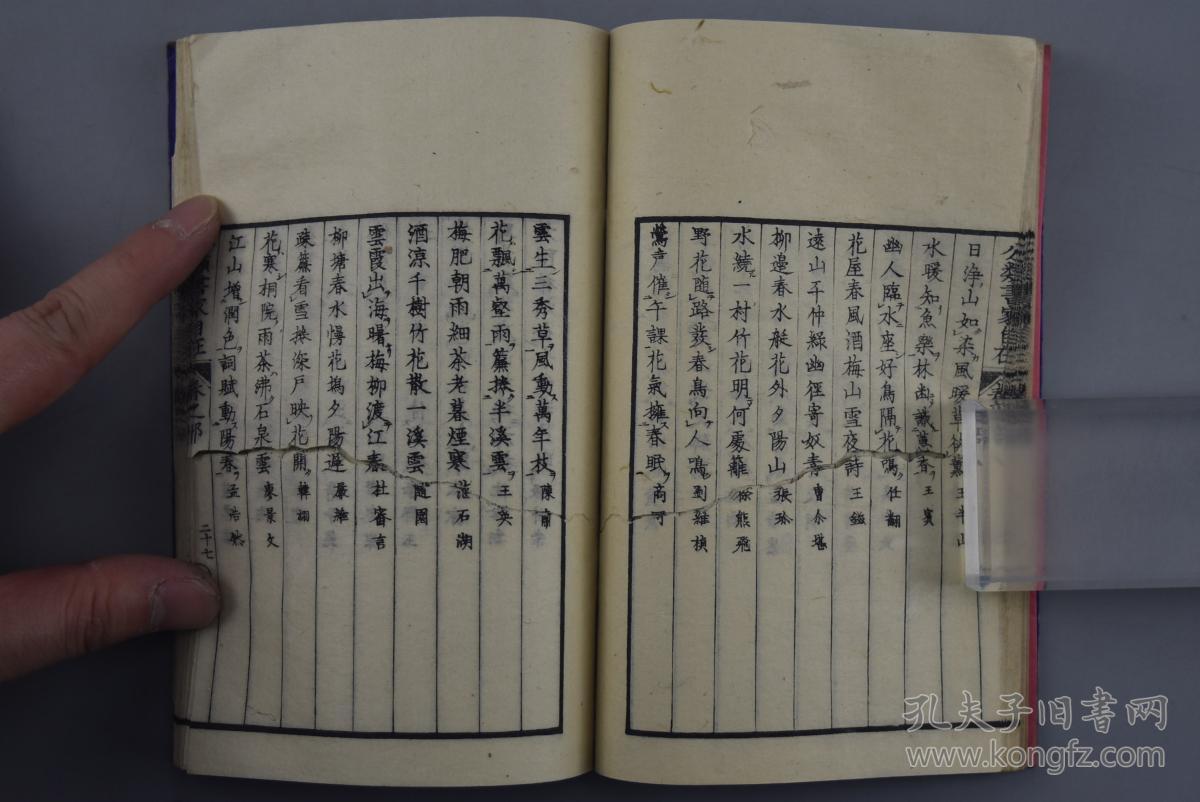 日浄山如染風暖草欲薫 王半山
水暖知魚樂林幽識蕙香 王賓
幽人臨水座好鳥隔花鳴 仕翻
花屋春風酒梅山雪夜詩 王鎡
遠山平仲緑幽徑寄奴青
柳邊春水艇花外夕陽山 張珍
水繞一村竹花明何處籬 徐熊飛
野花随路發春鳥向人鳴 劉維楨
鶯声催午課花氣擁春眠 商可
雲生三秀草風動萬年枝
花飄萬壑雨簾捲半溪雲 王英
梅肥朝雨細茶老暮煙寒 范石湖
酒涼千樹竹花散一溪雲 隨園
雲霞出海曙梅柳渡江春 杜審言
柳塘春水慢花塢夕陽遲 嚴維
疎簾看雪捲深戸映花開 韓翃
花寒桐院雨茶沸石泉雲 廖景文
江山增潤色詞賦動陽春 孟浩然
二十七
孔夫子旧书网
www.kongfz.com